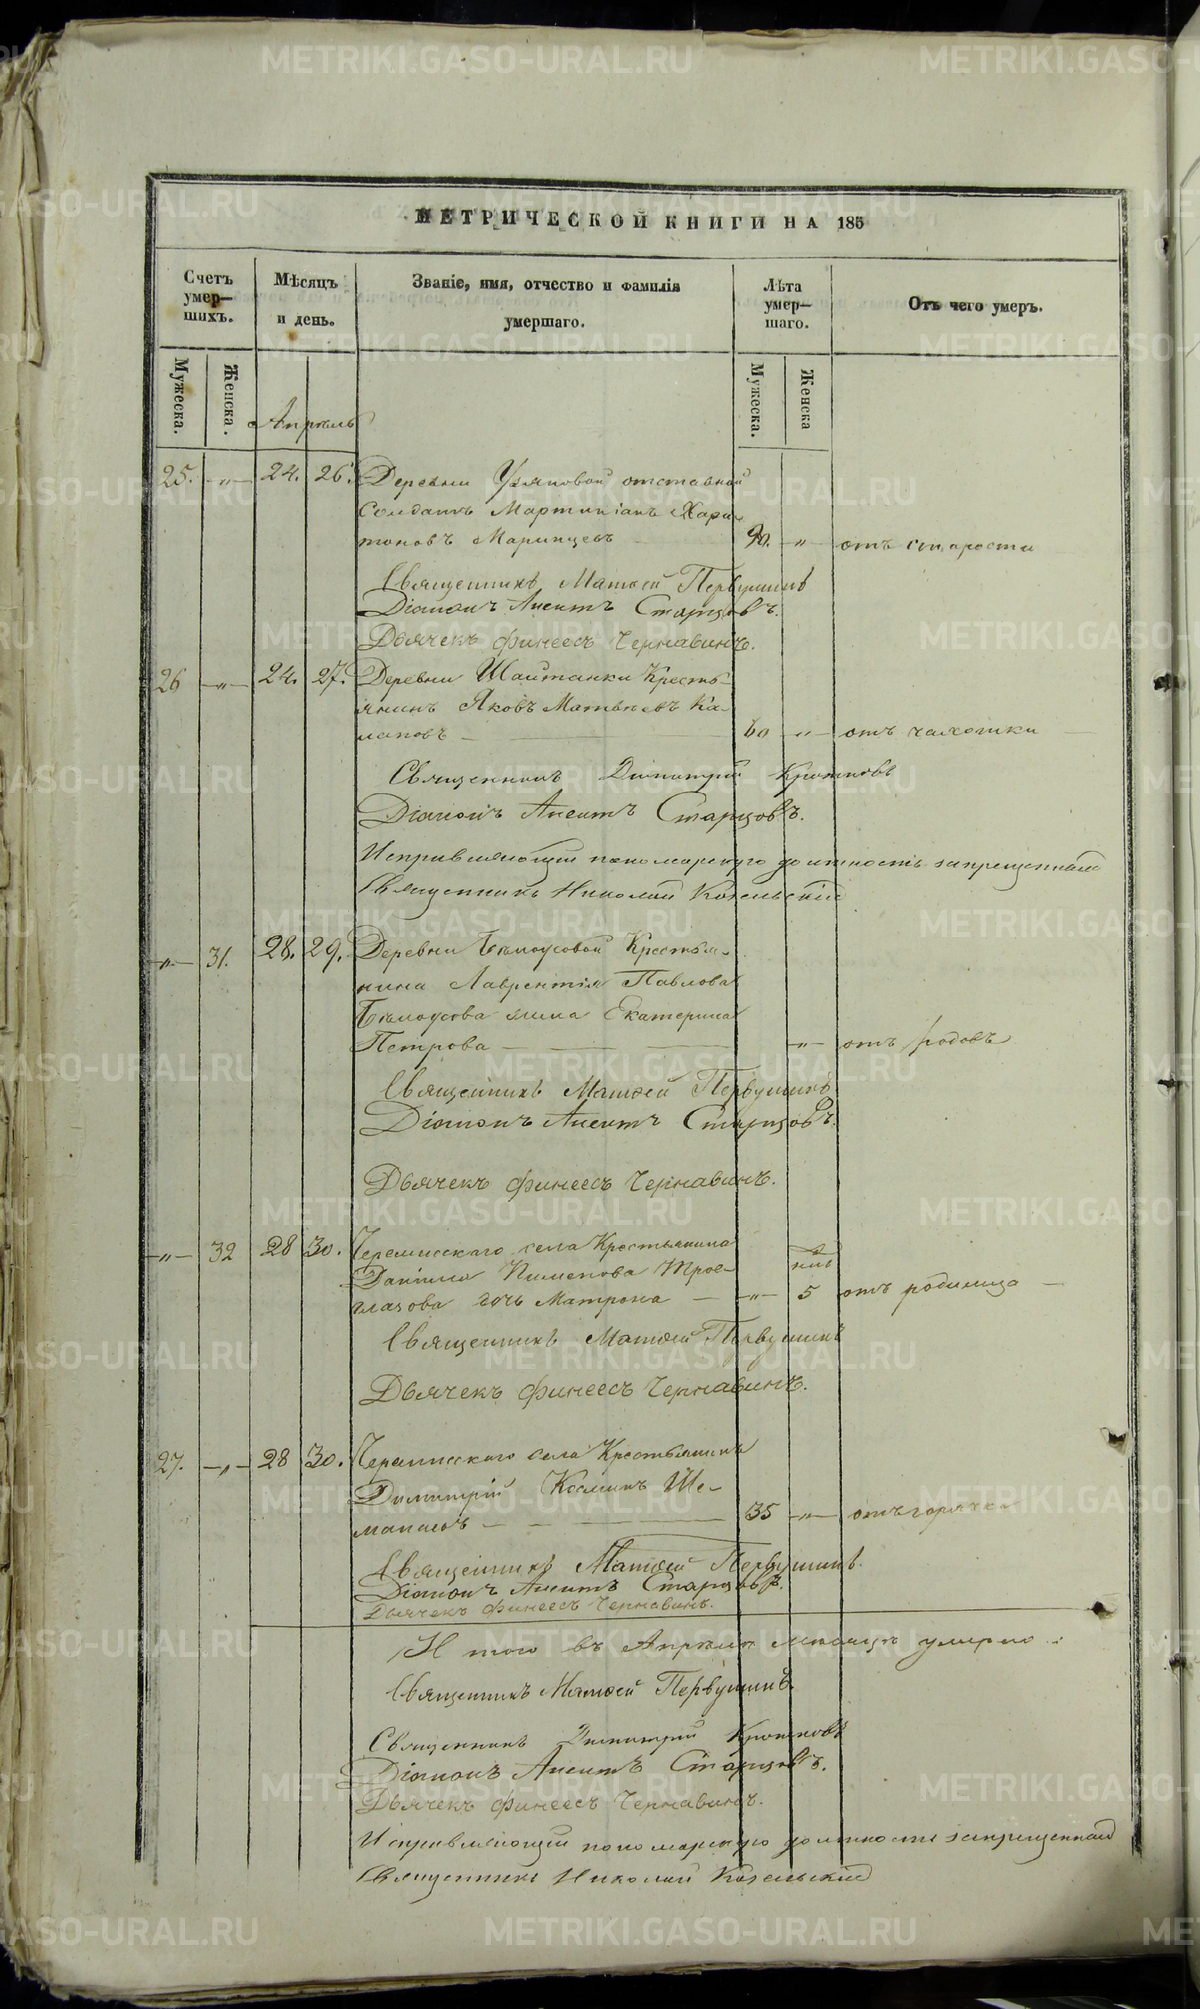 МЕТРИЧЕСКОЙ КНИГИ НА 185
Счетъ умер-шихъ.
Мѣсяцъ и день.
Званіе, имя, отчество и фамилія умершаго.
Лѣта умер-шаго.
Отъ чего умеръ.
Мужеска.
Женска.
Мужеска.
Женска
Апрѣль
25. „ 24. 26. Деревни отставной
Солдатъ Мартиніанъ Хари-
тоновъ 90. „ отъ старости
Священникъ Матѳей Первушинъ
Діаконъ Старцовъ.
Дьячекъ Финеесъ Чернавинъ.
26 „ 24. 27. Деревни Шайтанки Кресть-
янинъ Яковъ Матвѣевъ Ка-
60 „ отъ чахотки
Священникъ Димитрій Кротковъ
Діаконъ Старцовъ.
Исправляющій пономарскую должность запрещенный
Священникъ Николай Козельскій
„ 31. 28. 29. Деревни Бѣлоусовой Крестья-
нина Лаврентія Павлова
Бѣлоусова жена Екатерина
Петрова „ отъ родовъ
Священникъ Матѳей Первушинъ
Діаконъ Старцовъ.
Дьячекъ Финеесъ Чернавинъ.
„ 32 28 30. Черемисскаго села Крестьянина
Даніила Пименова Трое-
глазова дочь Матрона „ 5 отъ родимца
Священникъ Матѳей Первушинъ
Дьячекъ Финеесъ Чернавинъ.
27. „ 28 30. Черемисскаго села Крестьянинъ
Димитрій Косминъ Ше-
35 „ отъ горячки
Священникъ Матѳей Первушинъ.
Діаконъ Старцовъ.
Дьячекъ Финеесъ Чернавинъ.
И того въ Апрѣлѣ мѣсяцѣ умерло:
Священникъ Матѳей Первушинъ.
Священникъ Димитрій Кротковъ
Діаконъ Старцовъ.
Дьячекъ Финеесъ Чернавинъ.
Исправляющій пономарскую должность запрещенный
Священникъ Николай Козельскій
METRIKI.GASO-URAL.RU